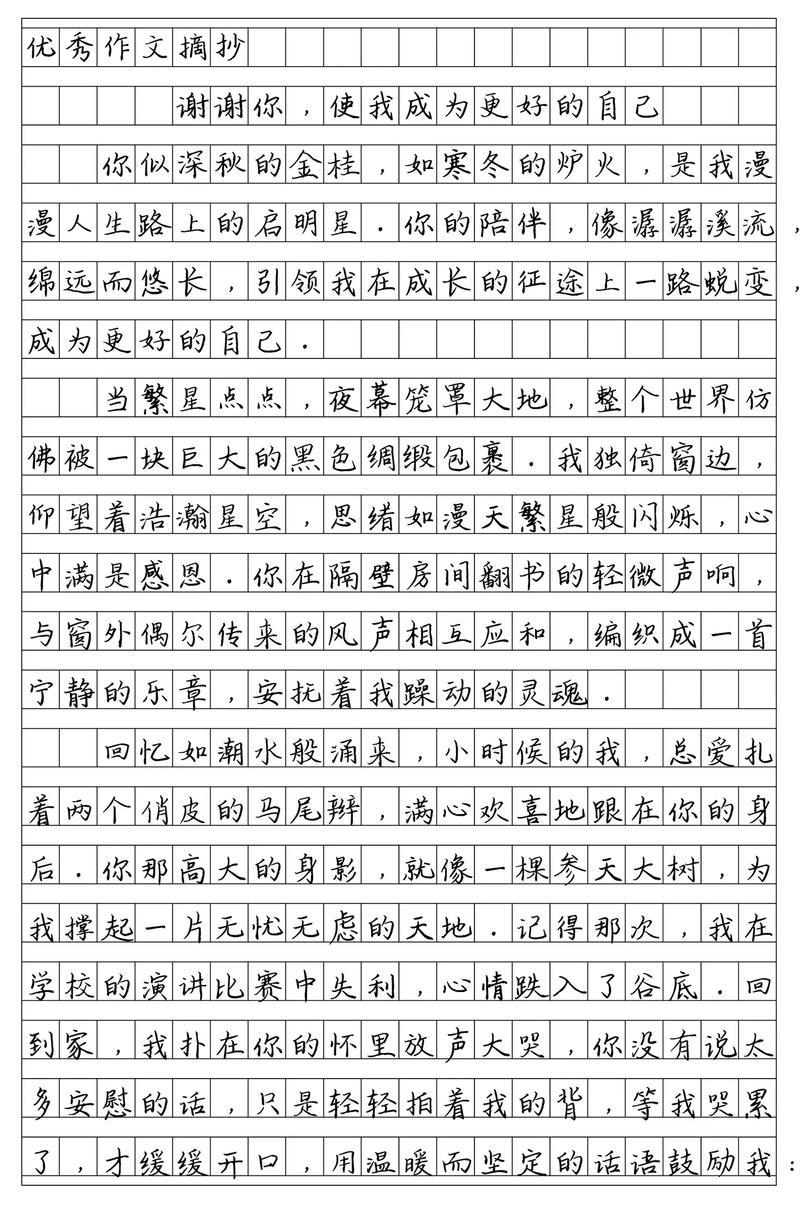 优秀作文摘抄
谢谢你，使我成为更好的自己
你似深秋的金桂，如寒冬的炉火，是我漫
漫人生路上的启明星．你的陪伴，像潺潺溪流，
绵远而悠长，引领我在成长的征途上一路蜕变，
成为更好的自己．
当繁星点点，夜幕笼罩大地，整个世界仿
佛被一块巨大的黑色绸缎包裹．我独倚窗边，
仰望着浩瀚星空，思绪如漫天繁星般闪烁，心
中满是感恩．你在隔壁房间翻书的轻微声响，
与窗外偶尔传来的风声相互应和，编织成一首
宁静的乐章，安抚着我躁动的灵魂．
回忆如潮水般涌来，小时候的我，总爱扎
着两个俏皮的马尾辫，满心欢喜地跟在你的身
后．你那高大的身影，就像一棵参天大树，为
我撑起一片无忧无虑的天地．记得那次，我在
学校的演讲比赛中失利，心情跌入了谷底．回
到家，我扑在你的怀里放声大哭，你没有说太
多安慰的话，只是轻轻拍着我的背，等我哭累
了，才缓缓开口，用温暖而坚定的话语鼓励我：